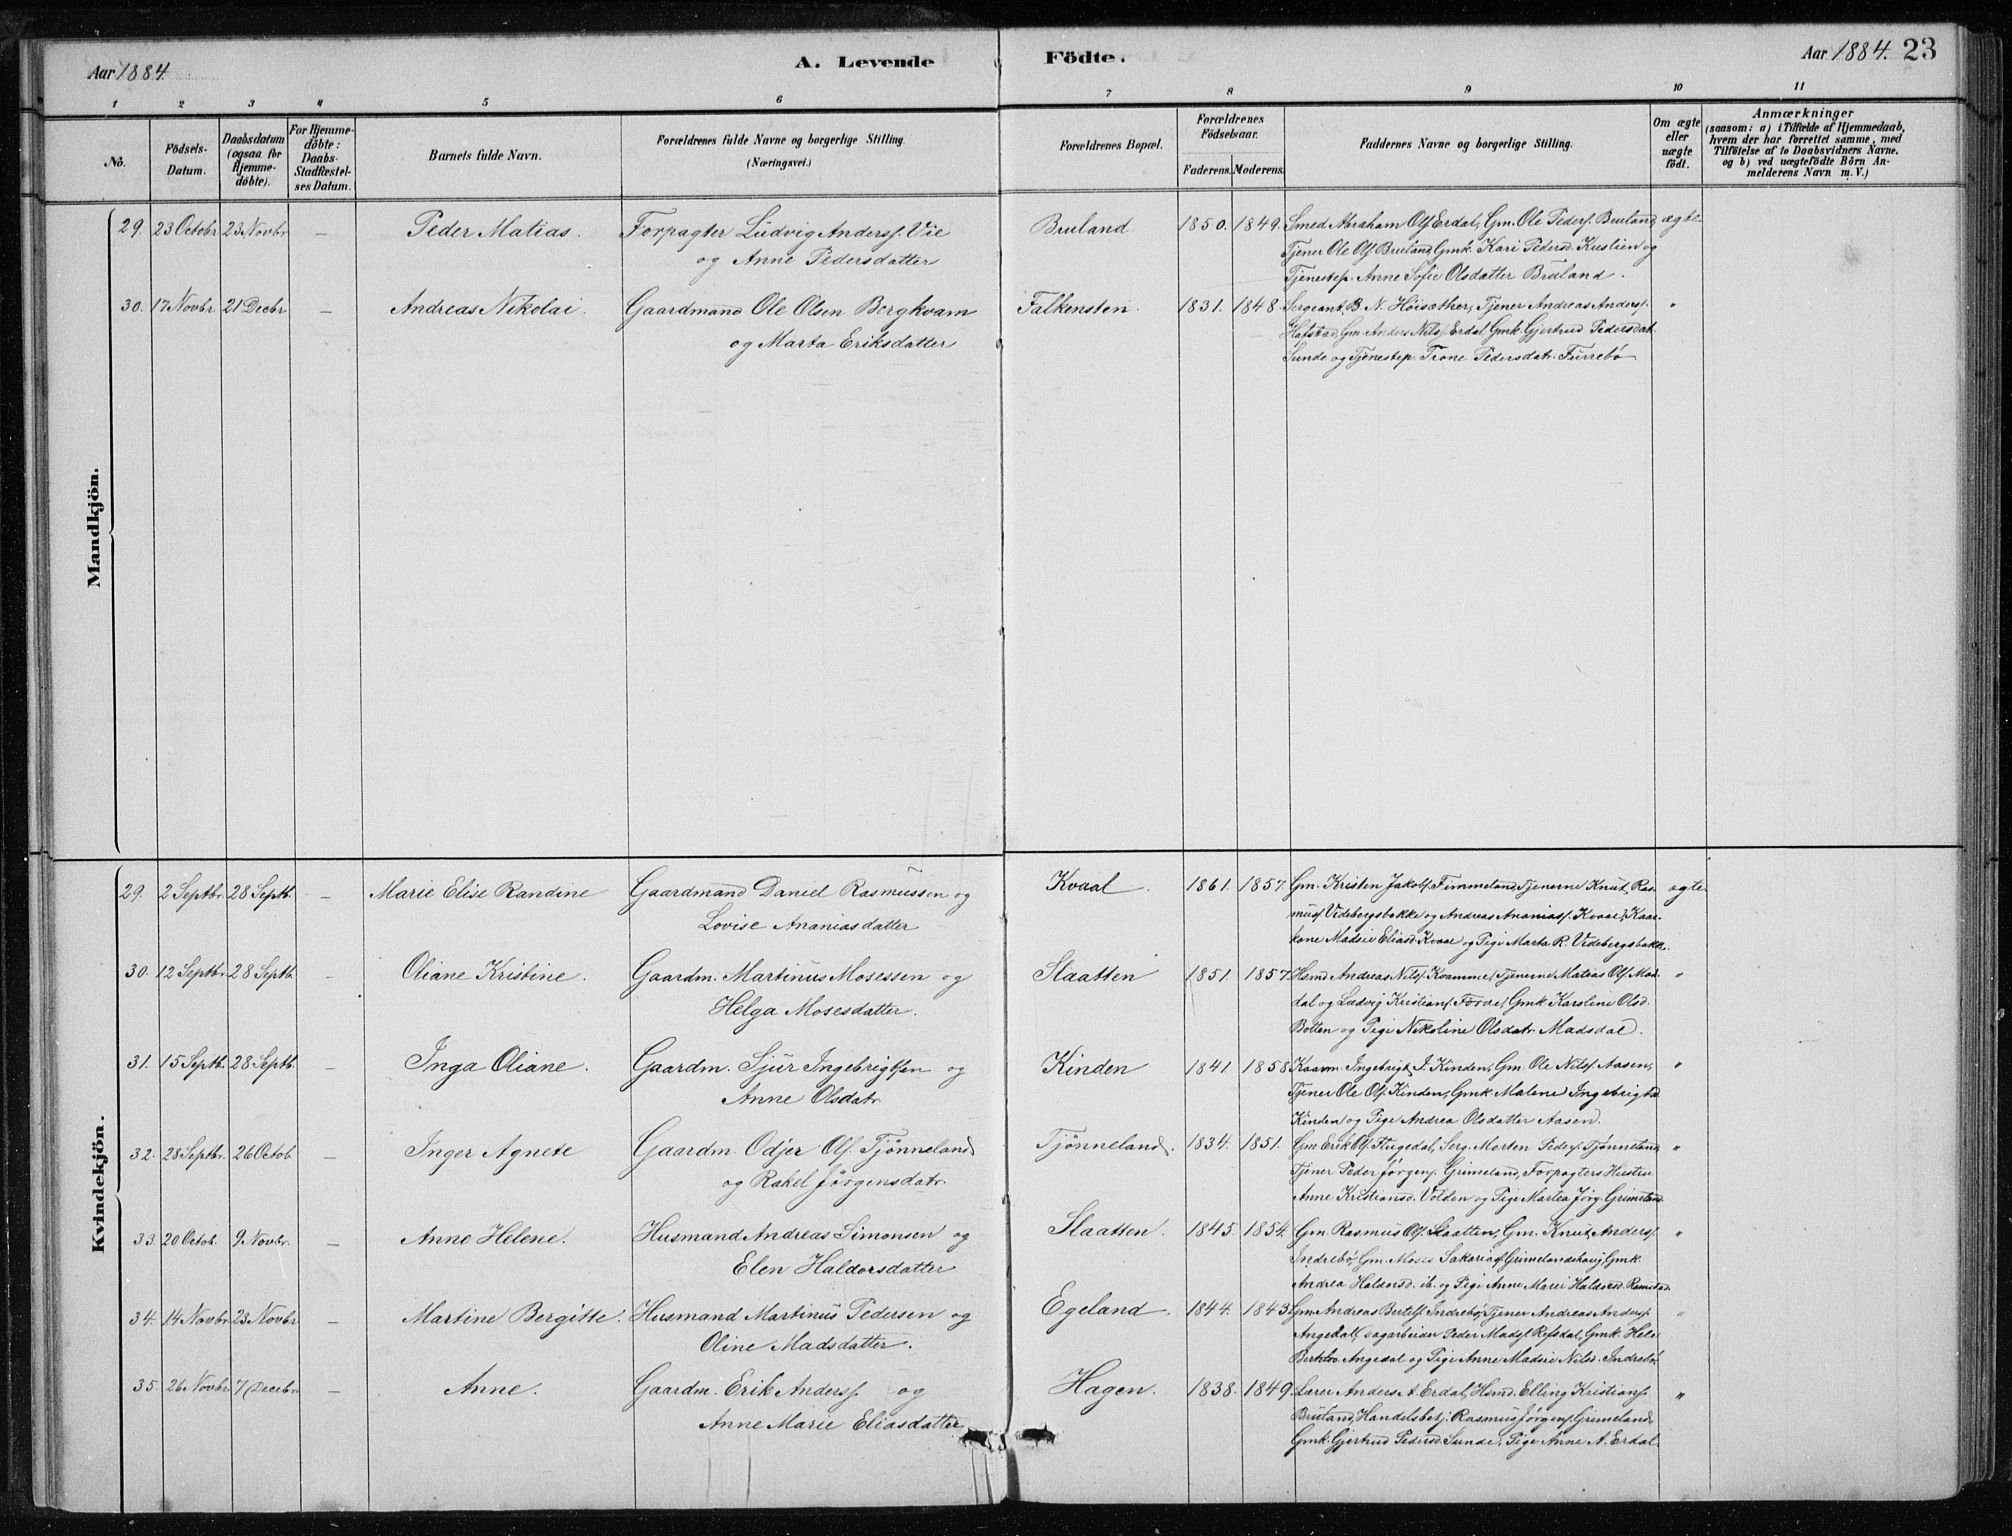 Aar 1884. A. Levende Födte. Aar 1884. 23
1 2 3 4 5 6 7 8 9 10 11
No. Födsels-Datum. Daabsdatum (ogsaa for Hjemme-döbte). For Hjemme-döbte: Daabs-Stadfæstel-ses Datum. Barnets fulde Navn. Forældrenes fulde Navne og borgerlige Stilling. (Næringsvei.) Forældrenes Bopæl. Forældrenes Födselsaar. Faderens. Moderens. Faddernes Navne og borgerlige Stilling. Om ægte eller uægte födt. Anmærkninger (saasom: a) i Tilfælde af Hjemmedaab, hvem der har forrettet samme, med Tilföielse af to Daabsvidners Navne, og b) ved uægtefödte Börn An-melderens Navn m. V.)
Mandkjön.
29. 23 Octobr 23 Novbr — Peder Matias. Forpagter Ludvig Anderss. Vie Bruland. 1850. 1849. Smed Abraham Ols. Erdal, Gm. Ole Peders. Bruland, ægte.
og Anne Pedersdatter Tjener Ole Ols. Bruland, Gmk. Kari Pedersd. Kustien og
Tjenestep. Anne Sofie Olsdatter Bruland.
30. 17 Novbr 21 Decbr — Andreas Nikolai. Gaardmand Ole Olsen Borgkvam Falkensten. 1831. 1848 Sergeant B. N. Höisæther, Tjener Andreas Anderss. "
og Marta Eriksdatter Hafstad, Gm. Anders Nils. Erdal, Gmk. Gjertrud Pedersdat.
Sunde og Tjenestep. Trone Pedersdatr. Furrebö
Kvindekjön.
29. 2 Septbr. 28 Septb. — Marie Elise Randine Gaardmand Daniel Rasmussen og Kvaal. 1861. 1857. Gm. Kristen Jakobs. Fimmeland, Tjenerne Knut Ras- ægte
Lovise Ananiasdatter mus. Videbergsbakke og Andreas Ananias. Kvaal, Kaar-
kone Madsie Eliasd. Kvaal og Pige Marta R. Videbergsbakk.
30. 12 Septbr 28 Septb. — Oliane Kristine. Gaardm. Martinus Mosessen og Slaatten 1851. 1857. Hsmd Andreas Nils. Kvamme, Tjenerne Matias Ols. Mad- "
Helga Mosesdatter. dal og Ludvig Kristians. Farve, Gmk. Karoline Olsd.
Botten og Pige Nikoline Olsdatr. Madsdal.
31. 15 Septb. 28 Septb. — Inga Oliane. Gaardm. Sjur Ingebrigtsen og Kinden 1841 1858 Kaarm. Ingebrigt J. Kinden, Gm. Ole Nils. Aasen, "
Anne Olsdatr Tjener Ole Ols. Kinden, Gmk. Malene Ingebrigtsd.
Kinden og Pige Andrea Olsdatter Aasen.
32. 28 Septbr. 26 Octob. — Inger Agnete Gaardm. Odjer Ols. Tjønneland Tjønneland. 1834. 1851. Gm. Erik Ols. Stugedal, Serg. Morten Peders. Tjønneland, "
og Rakel Jørgensdatr. Tjener Peder Jørgens. Grimeland, Forpagters Hustru
Anne Kristiansd. Volden og Pige Martea Jörg. Grimeland.
33. 20 Octob. 9 Novbr. — Anne Helene. Husmand Andreas Simonsen og Slaatten. 1845. 1854. Gm. Rasmus Ols. Slaatten, Gm. Knut Anders. "
Elen Haldorsdatter Indrebö, Gm. Moses Sakarias. Grimelandshaug, Gmk.
Andrea Haldorsd. ib. og Pige Anne Marie Haldorsd. Ramstad.
34. 14 Novbr 23 Novbr — Martine Bergitte. Husmand Martinus Pedersen og Egeland. 1844. 1843 Gm. Andreas Bertels. Indrebö, Tjener Andreas Anders. "
Oline Madsdatter. Angedal, Dagarbeider Peder Mads. Refsdal, Gmk. Hele
Angedal og Pige Anne Madsie Nilsd. Indrebö.
35. 26 Novbr 7 Decebr — Anne. Gaardm. Erik Anderss. og Hagen. 1838. 1849. Lærer Anders A. Erdal, Hsmd. Elling Kristians. "
Anne Marie Eliasdatter Bruland, Handelsbetj. Rasmus Jørgens. Grimeland,
Gmk. Gjertrud Pedersd. Sunde, Pige Anne A. Erdal.